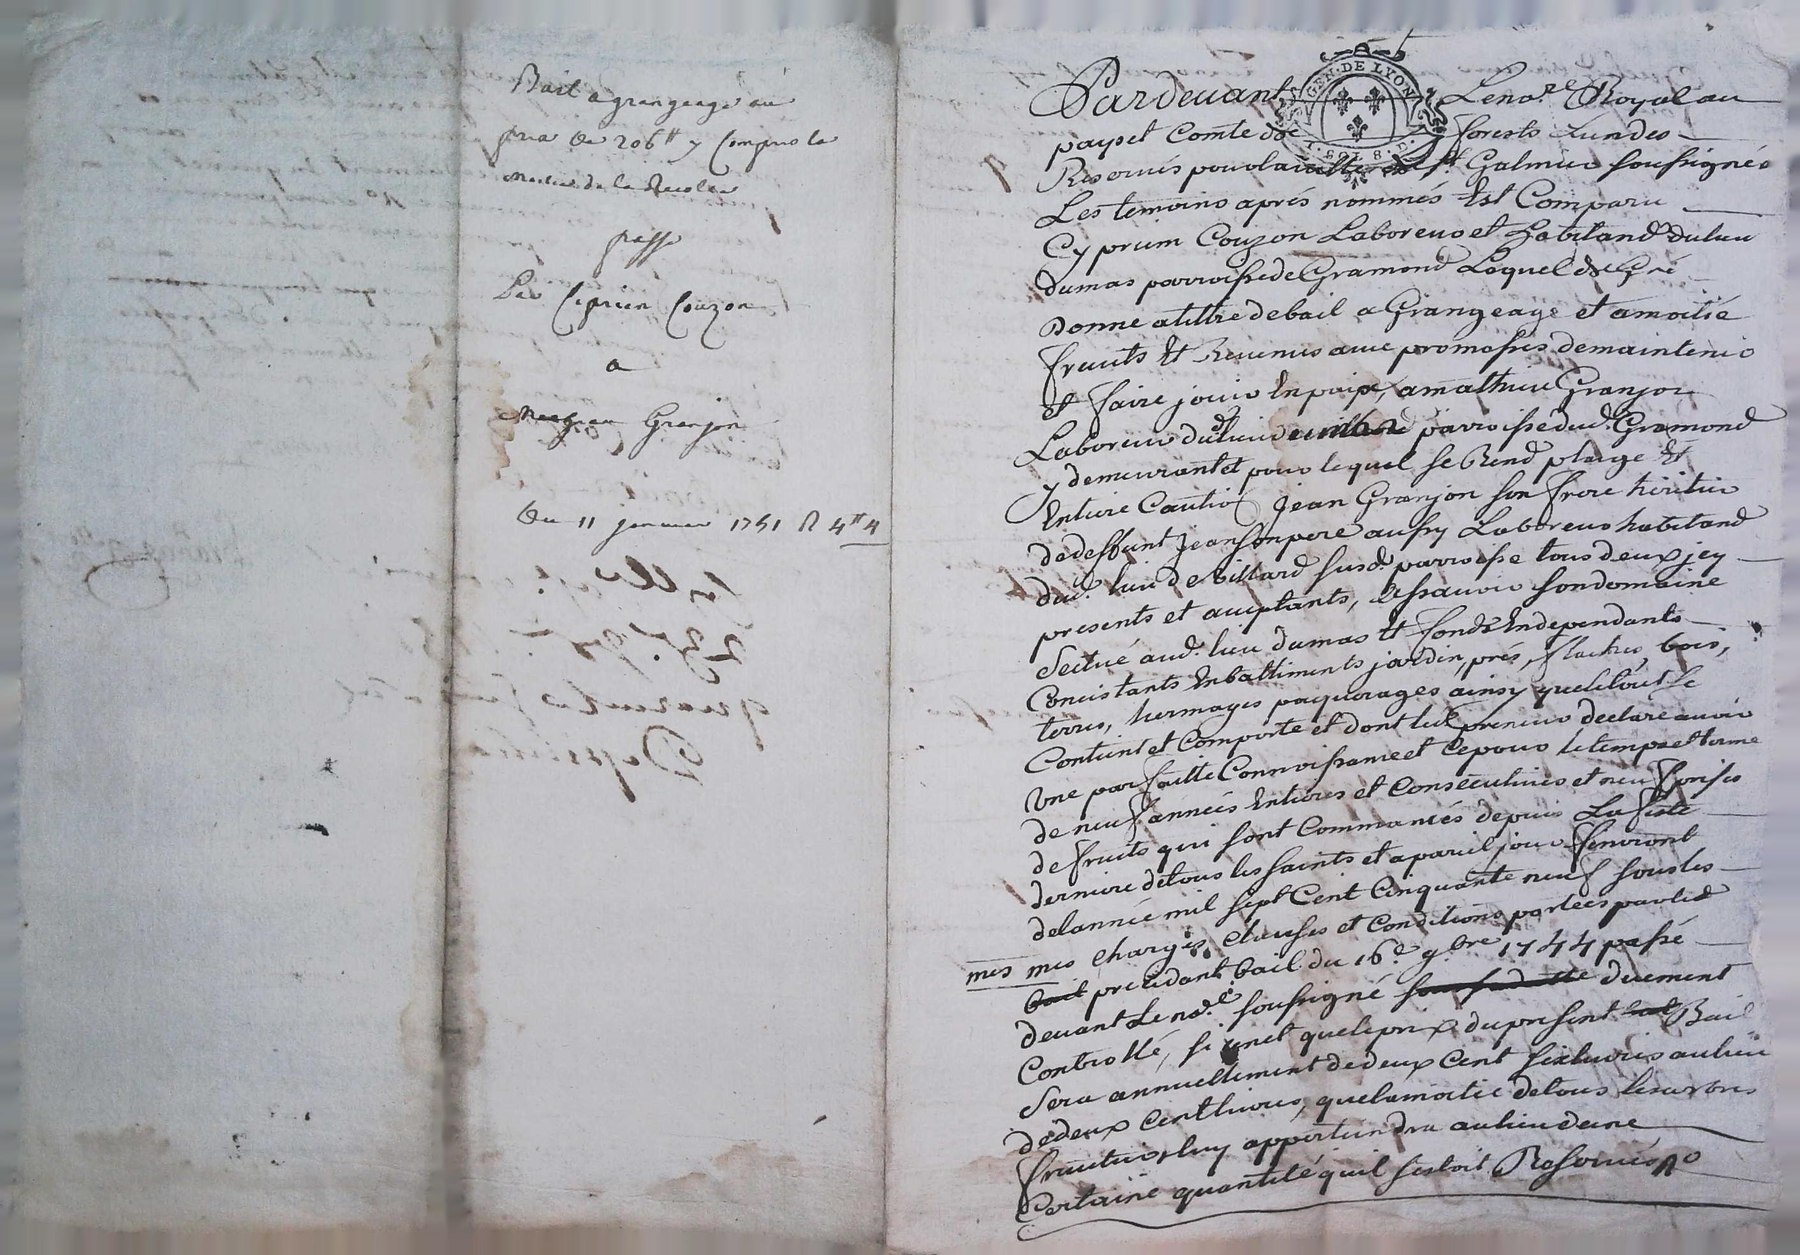 Bail a grangeage au
prix de 206ᵗᵗ y Compris la
moitié de la Recolte
passé
Par Ciprien Couzon
a
Mathieu Granjon
Du 11 janvier 1751 R 4ᵗᵗ 4
GEN. DE LYON
1. SOL 8. D.
Pardevant Le noʳᵉ Royal au
pays et Comté de forests Lun des
Reservés pour la ville de Sᵗ Galmier soussigné
Les temoins aprés nommés Est Comparu
Cyprien Couzon Laboreur et habitand du lieu
dumas parroisse de Gramond Lequel de Gré
Donne a tiltre de bail a Grangeage et amoitié
fruits Et Revenus avec promesses de maintenir
et faire jouir En paix, a mathieu Granjon
Laboreur du lieu de villard parroisse dud. Gramond
y demeurant et pour lequel se Rend pleige Et
Entiere Caution Jean Granjon son frere heritier
de deffunt Jean son pere aussy Laboreur habitand
dud. lieu de Villard susd. parroisse tous deux jcy
presents et acceptants, Sçavoir son domaine
scitué aud. lieu dumas et fonds Independants
Concistants En battiments jardin, prés, bois,
terres, hermages paquerages ainsy que le tout se
Contient et Comporte et dont led. preneur declare avoir
Une parfaitte Connoissance et Ce pour le temps et terme
de neuf années Entieres et Consecutives et neuf prises
de fruits qui sont Commancés depuis La feste
derniere de tous les saints et a pareil jour finiront
de lannée mil sept Cent Cinquante neuf sous les
mes mes charges, Clauses et Conditions portées par led.
bail precedant bail du 16ᵉ 9bre 1744 passé
devant Le noʳᵉ soussigné duement
Controllé, si cenet que le prix du present Bail
Sera annuellement de deux Cent six livres au lieu
de deux Cent livres, que la moitié de tous les arbres
fruitiers luy appartiendra au lieu dune
Certaine quantité quil sestoit Reservé